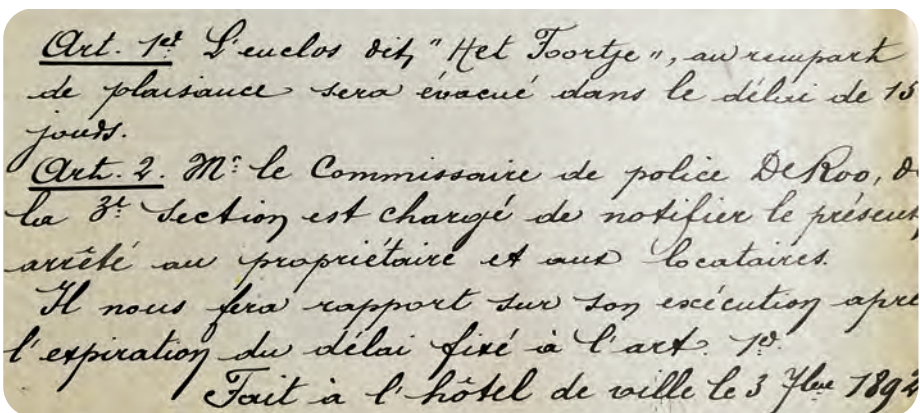 Art. 1er L'enclos dit, "Het Poortje", au rempart
de plaisance sera évacué dans le délai de 15
jours.
Art. 2. Mr le Commissaire de police De Roo, d
la 3e Section est chargé de notifier le présen
arrêté au propriétaire et aux locataires.
Il nous fera rapport sur son exécution apr
l'expiration du délai fixé à l'art. 1er.
Fait à l'hôtel de ville le 3 7bre 189